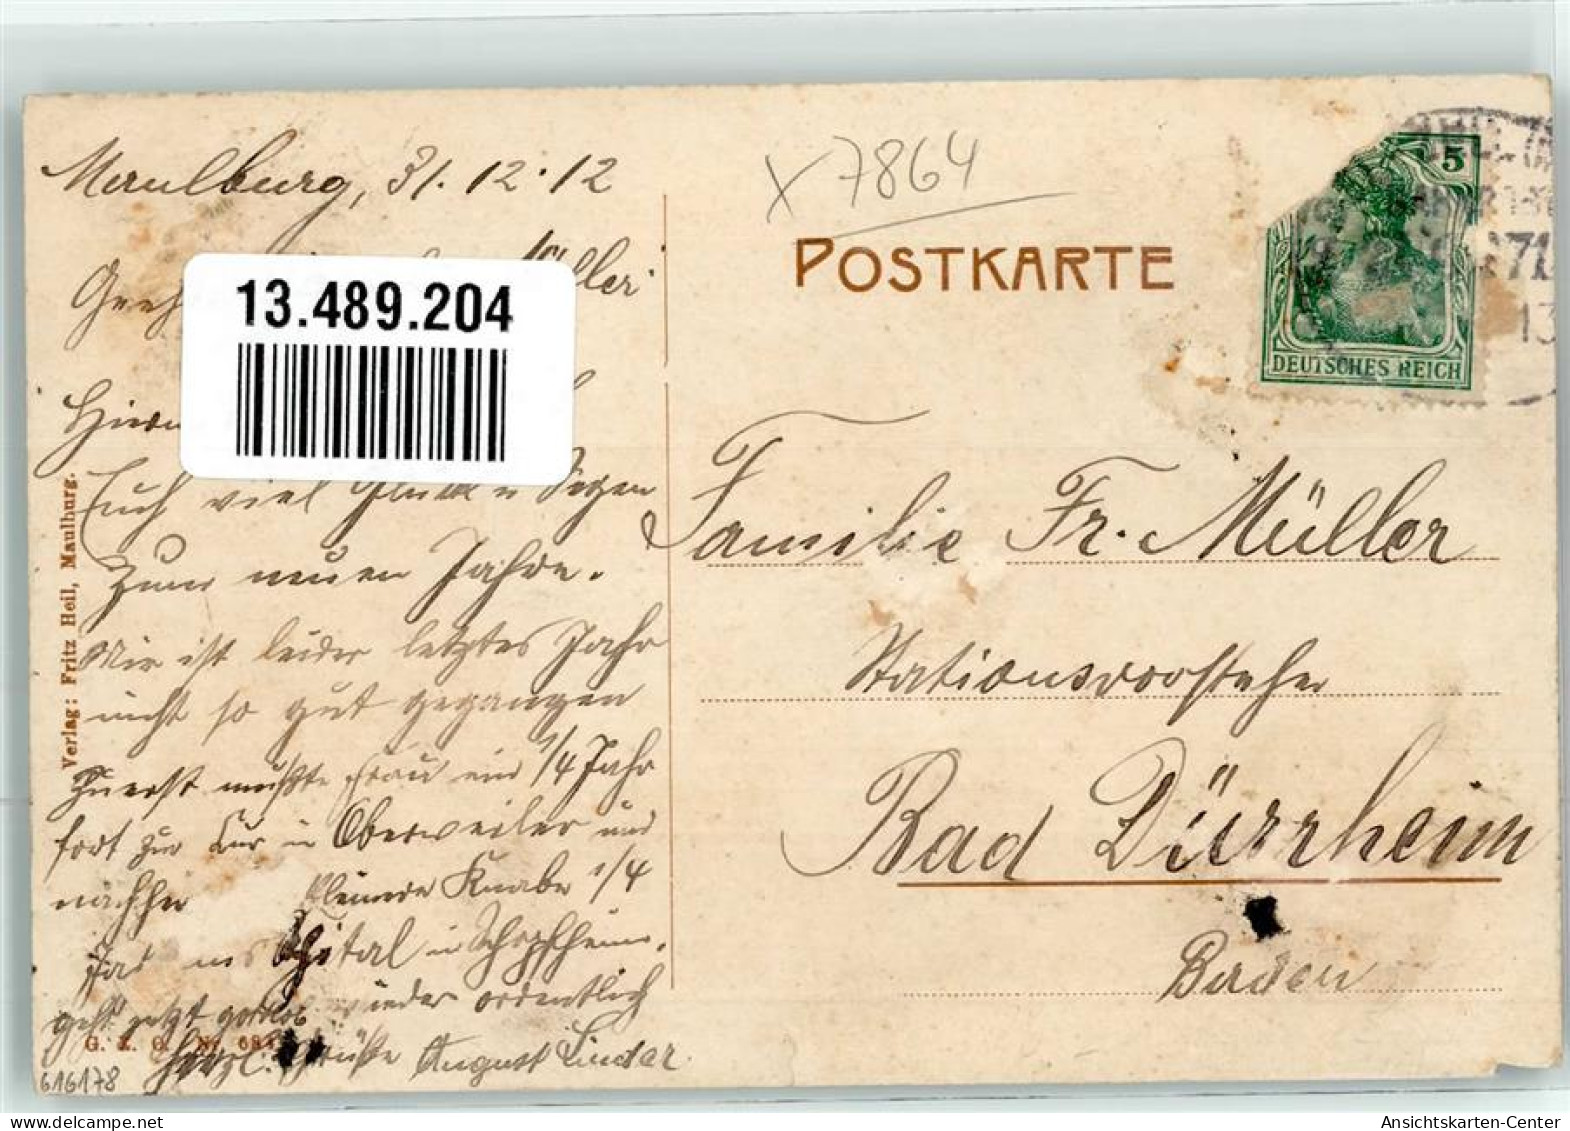 Maulburg, 31.12.12
13.489.204
Euch viel Glück u Segen
Zum neuen Jahre.
Mir ist leider letztes Jahr
nicht so gut gegangen
Zuerst mußte Frau ein 1/4 Jahr
fort zur Kur in Oberweiler und
nachher kleinere Knabe 1/4
Jar ins Spital in Schopfheim.
geht jetzt gottlob wieder ordentlich
Herzl. Grüße August Linder.
Verlag: Fritz Heil, Maulburg.
616178
X 7864
POSTKARTE
5
DEUTSCHES REICH
Familie Fr. Müller
Stationsvorsteher
Bad Dürrheim
Baden
Ansichtskarten-Center